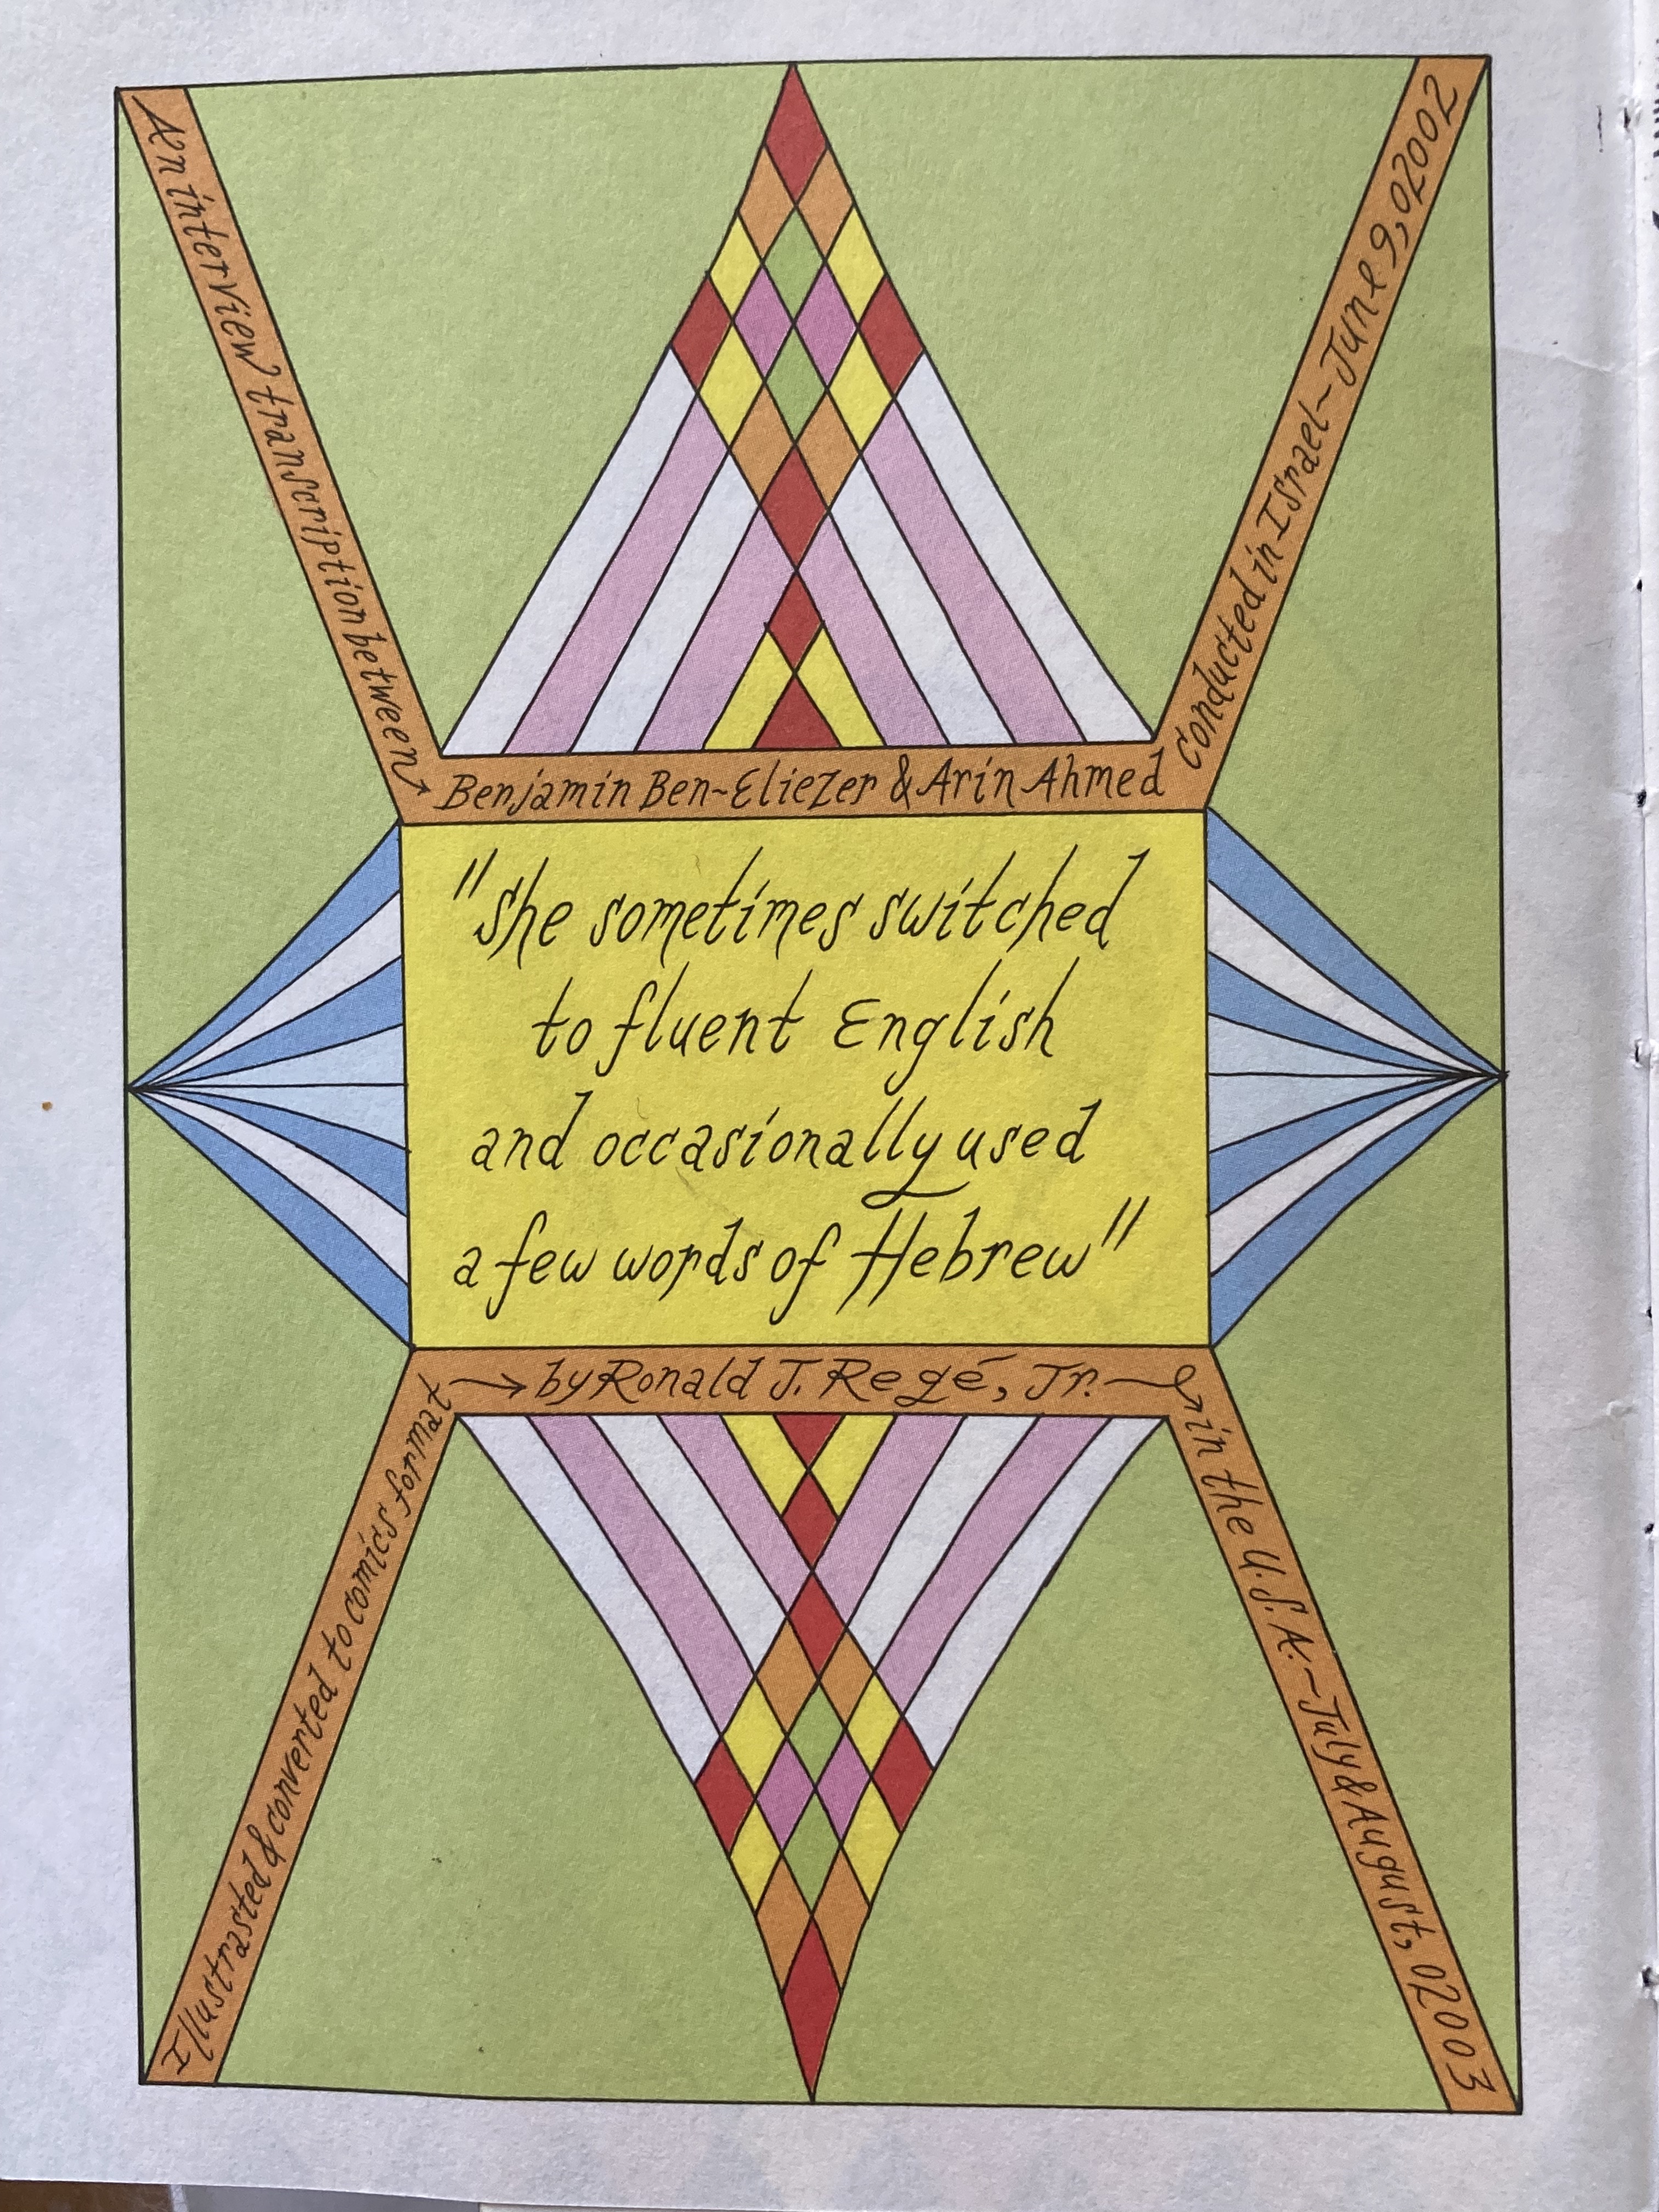 An interview transcription between
Benjamin Ben-Eliezer & Arin Ahmed
Conducted in Israel~June 9, 02002
"she sometimes switched
to fluent English
and occasionally used
a few words of Hebrew"
Illustrasted & converted to comics format
by Ronald J. Regé, Jr.
in the U.S.A.~July & August, 02003